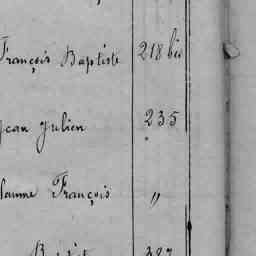 François Baptiste 218 bis
Jean Julien 235
François "